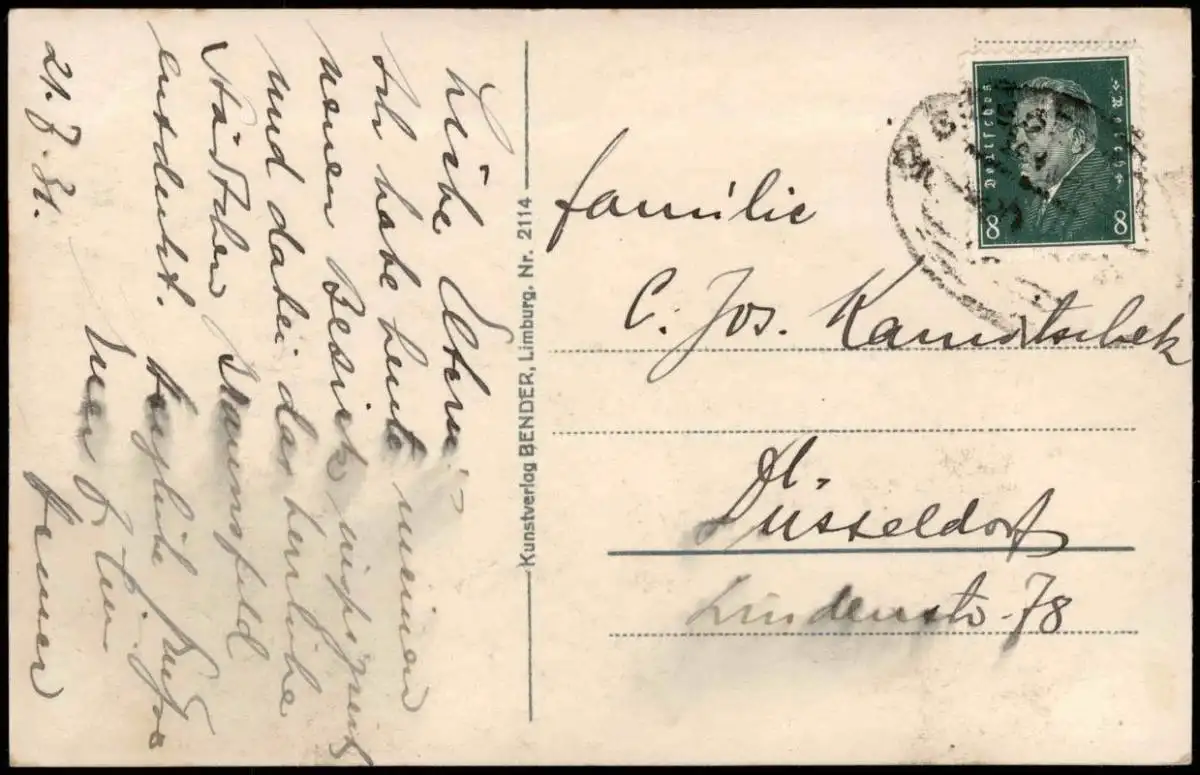 Liebe Eltern!
Ich habe heute meinen
neuen Bezirk
und dabei das herrliche
Städtchen
entdeckt. Herzliche Grüße
Euer
21. 7. 31.
Kunstverlag BENDER, Limburg. Nr. 2114
Deutsches Reich
8 8
Familie
C. Jos. Kamotschek
Düsseldorf
Lindenstr. 78